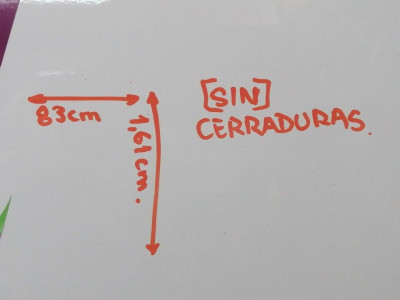 [SIN]
CERRADURAS.
83cm
1,61cm.